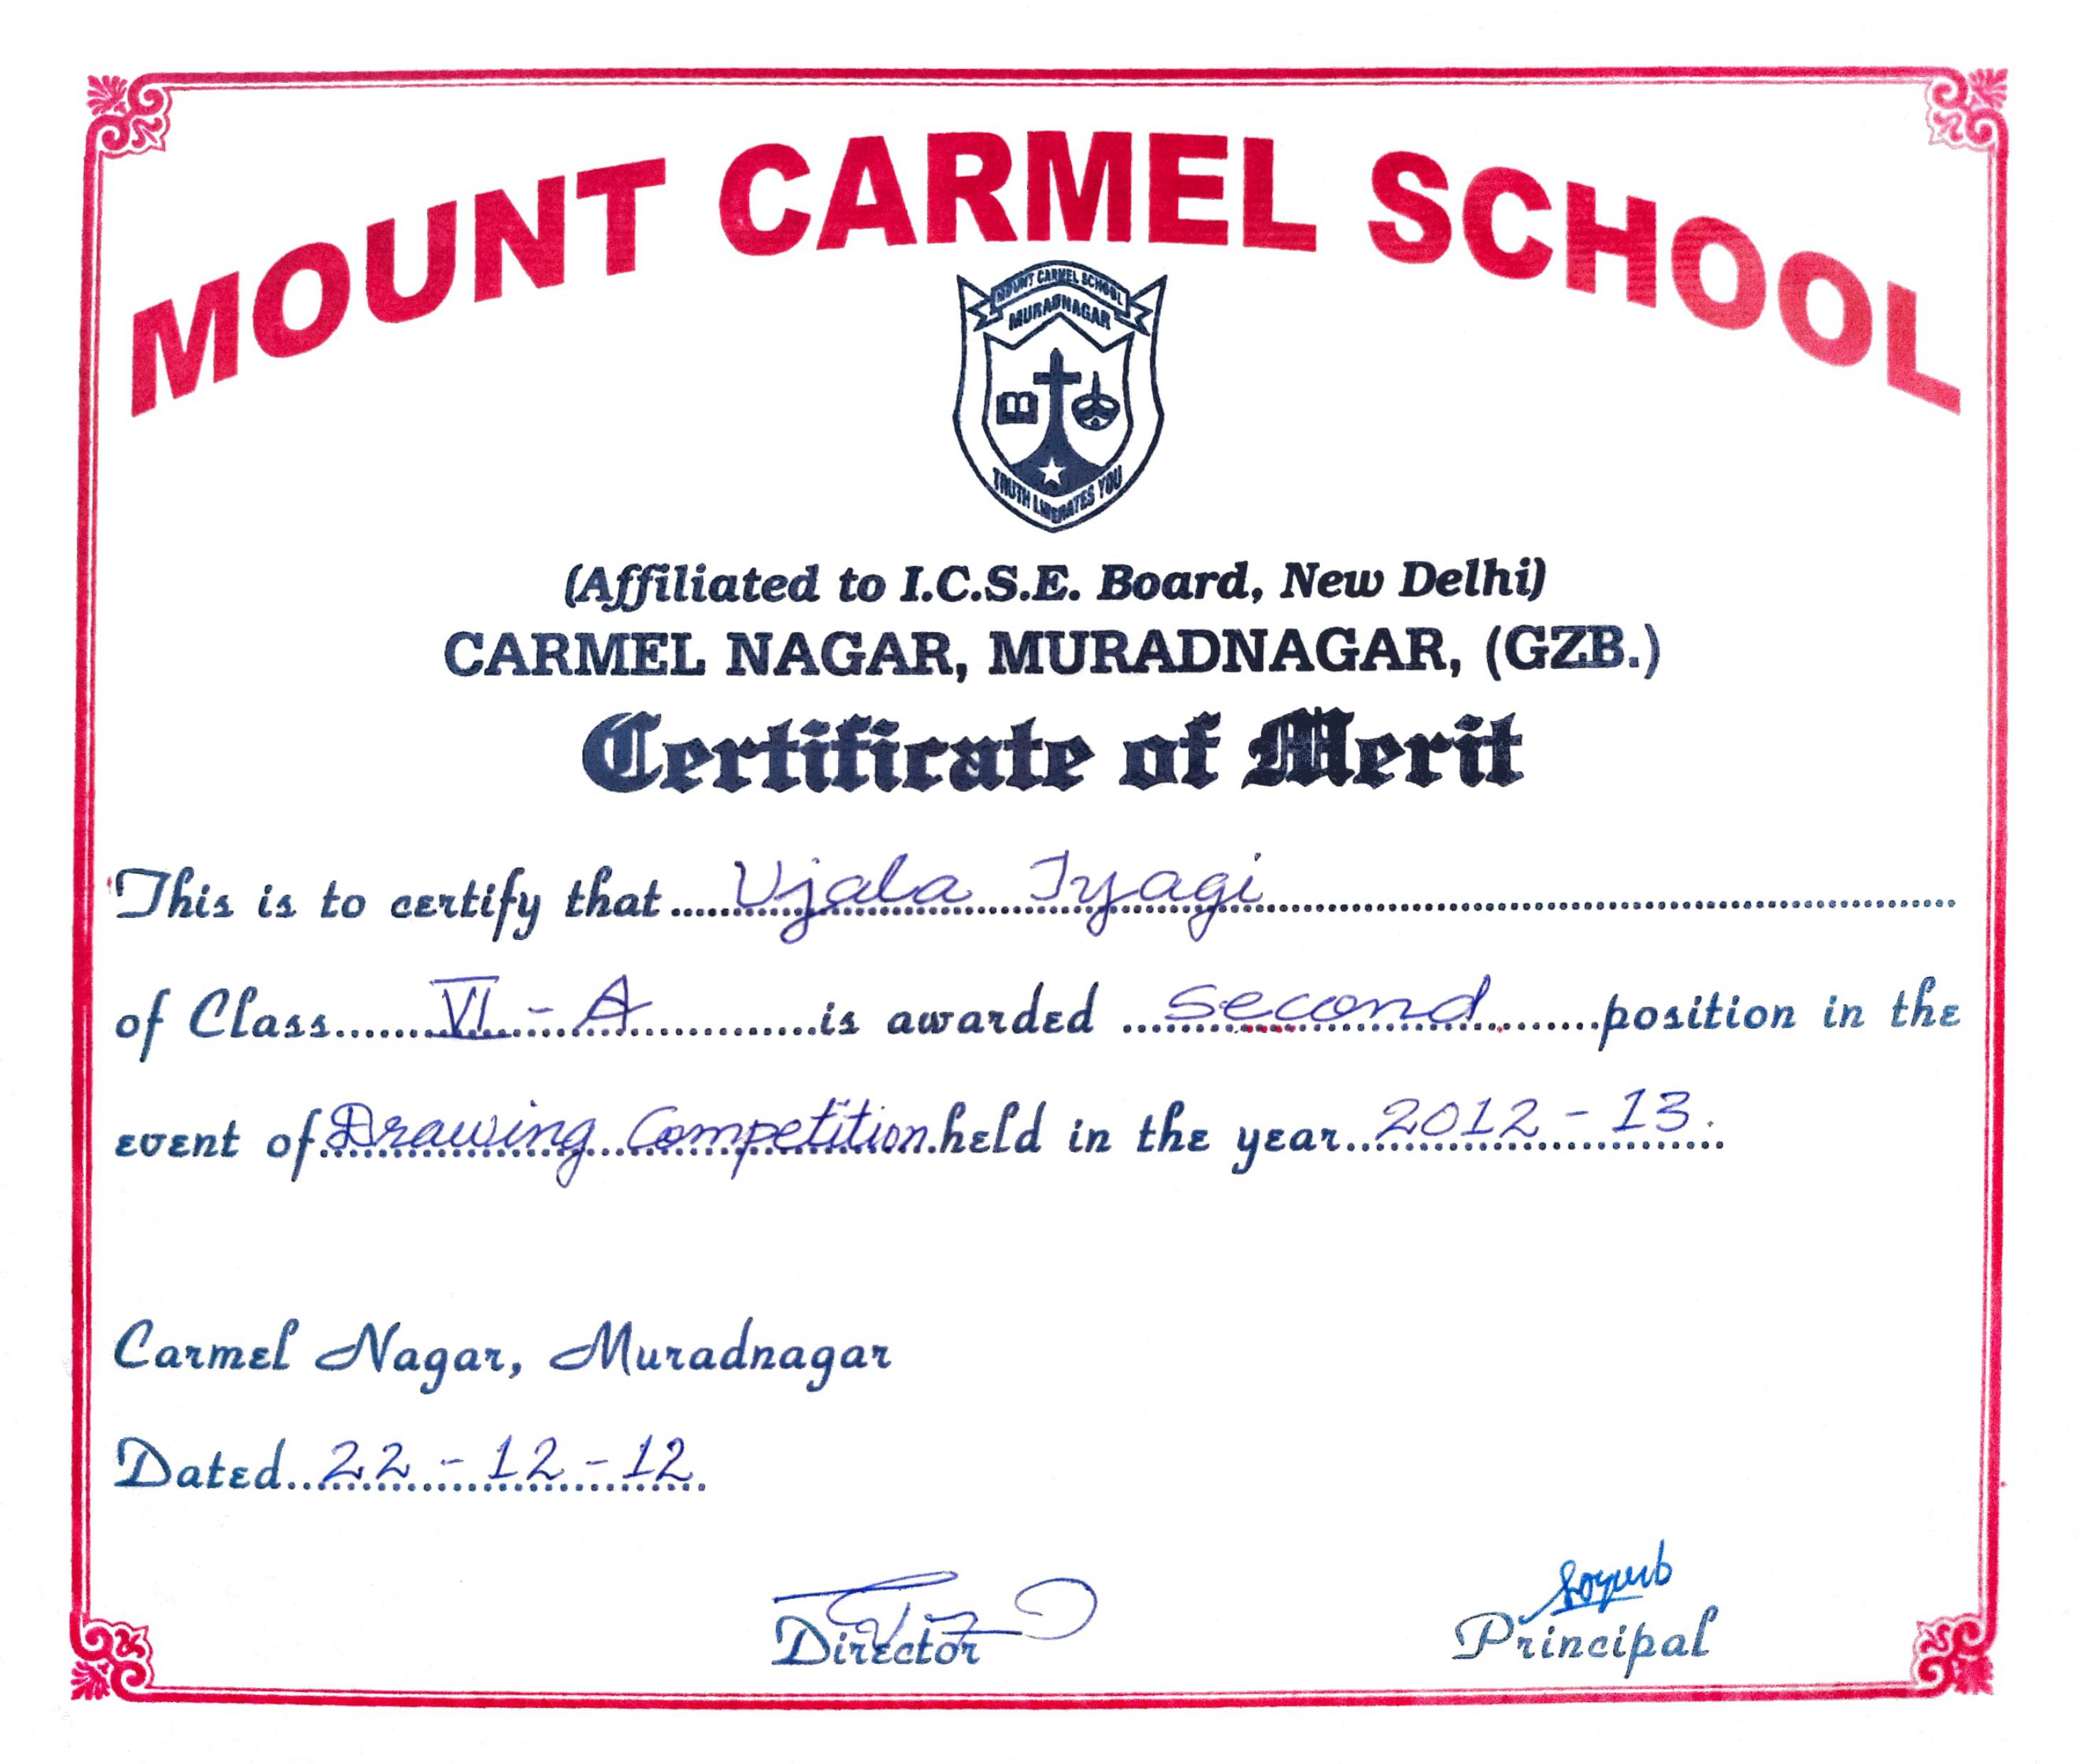 MOUNT CARMEL SCHOOL
MOUNT CARMEL SCHOOL
MURADNAGAR
TRUTH LIBERATES YOU
(Affiliated to I.C.S.E. Board, New Delhi)
CARMEL NAGAR, MURADNAGAR, (GZB.)
Certificate of Merit
This is to certify that Ujala Tyagi
of Class VI - A is awarded Second position in the
event of Drawing Competition held in the year 2012 - 13.
Carmel Nagar, Muradnagar
Dated 22 - 12 - 12
Director
Principal